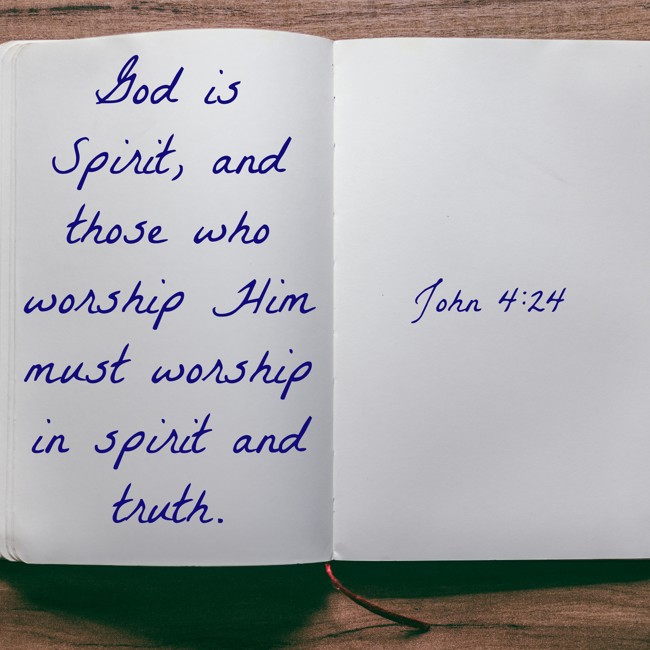 God is
Spirit, and
those who
worship Him
must worship
in spirit and
truth.
John 4:24